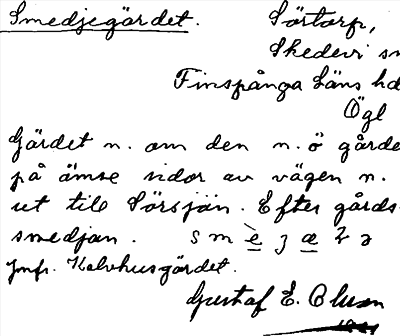 Smedjegärdet. Sörtorp,
Skedevi sn
Finspånga Läns hd
Ögl
Gärdet n. om den n. ö gårde
på ömse sidor av vägen n.
ut till Sörsjön. Efter gårds-
smedjan.
Jmfr. Kalvhusgärdet.
Gustaf E. Oluson